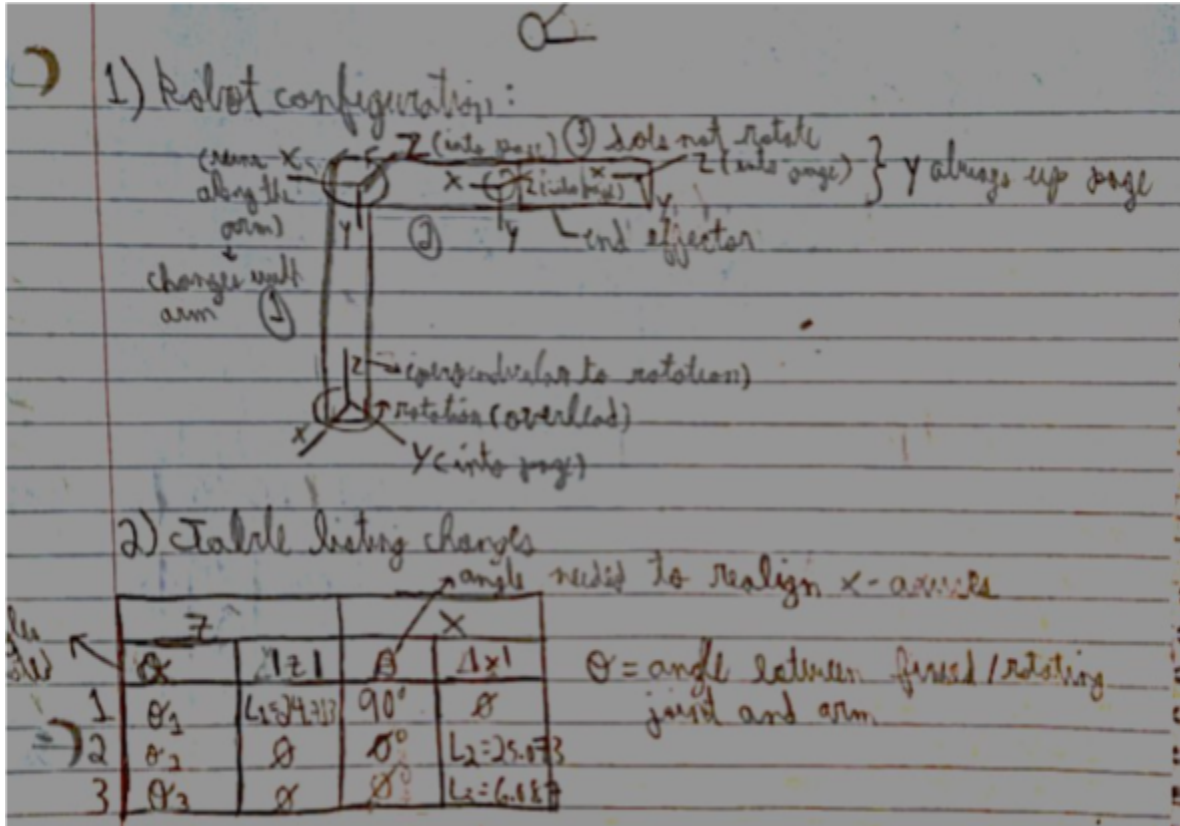 1) Robot configuration:
Z (into page) ③ does not rotate
X
Z (into page) } Y always up page
along the
arm)
X
X
Z (into page)
Y
②
Y
Y
end effector
changes with
arm ①
Z
(perpendicular to rotation)
rotation (overhead)
X
Y (into page)
2) Table listing changes
angle needed to realign x-axises
Z X
α |z| β |x|
1 θ1 90° Ø
2 θ2 Ø Ø° L2=25.073
3 θ3 Ø Ø°
θ = angle between fixed/rotating
joint and arm